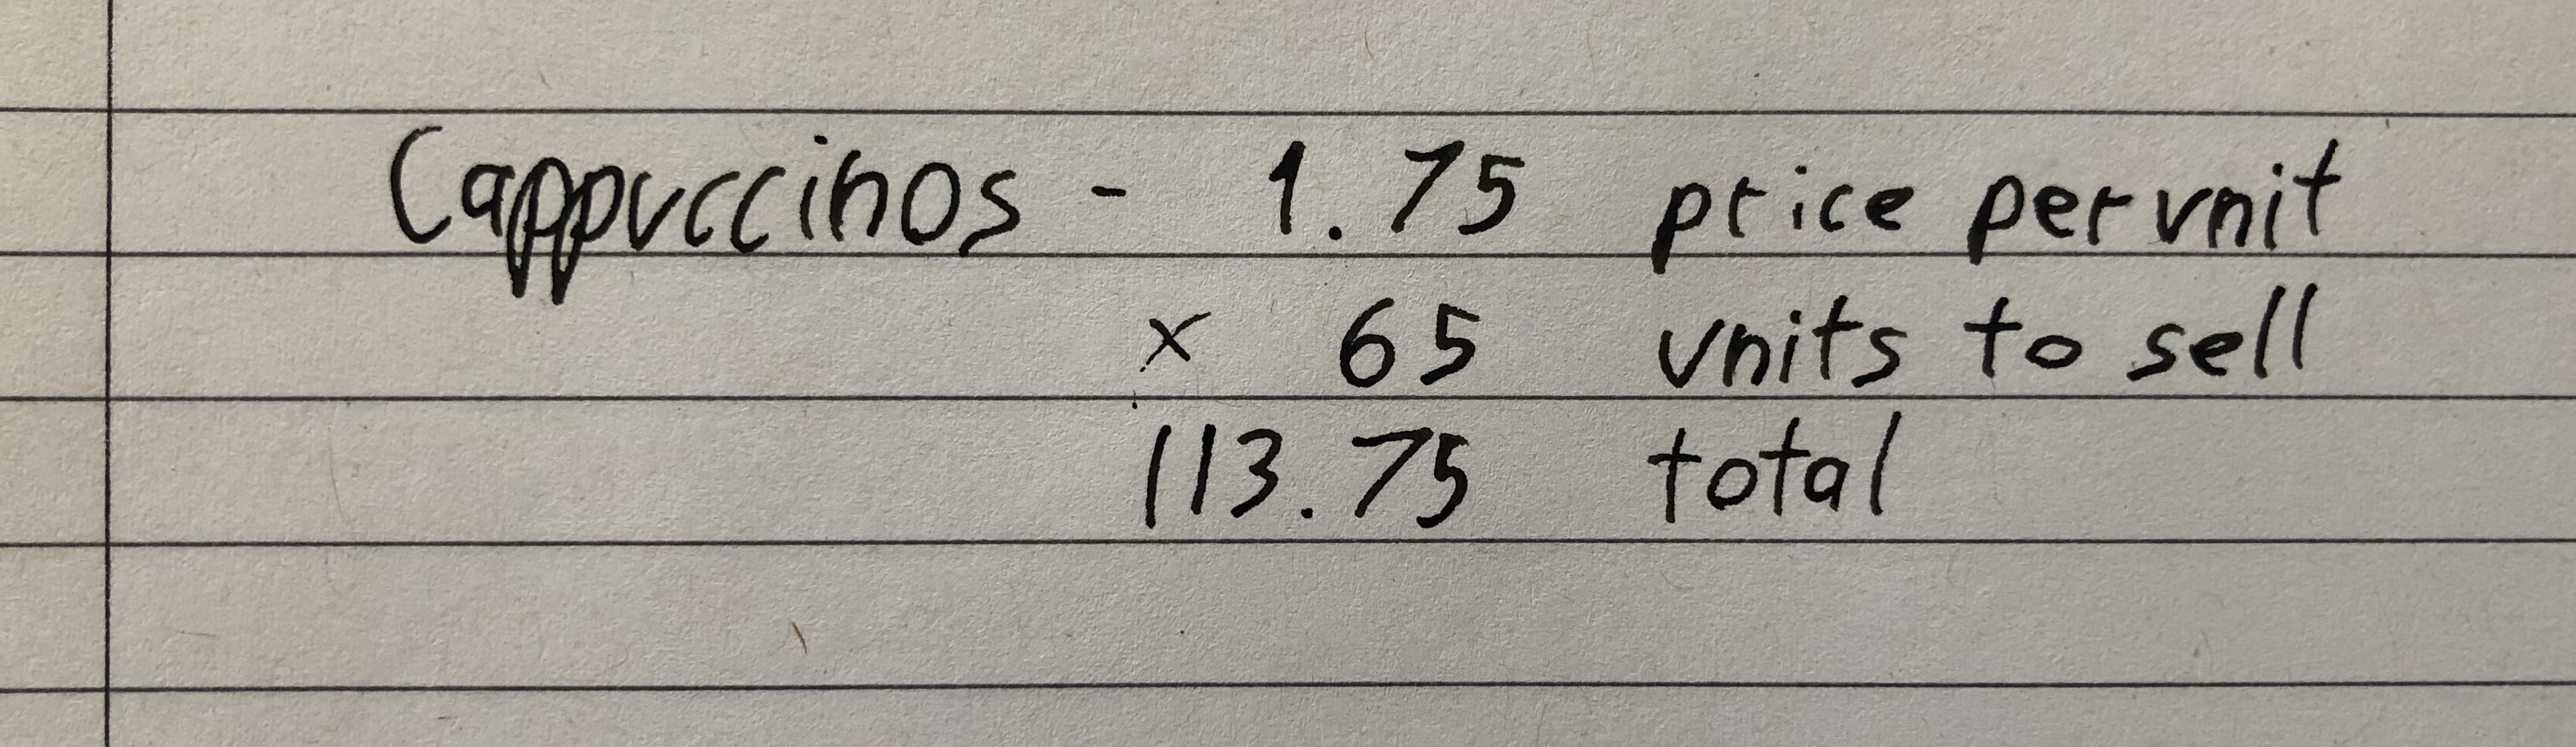 Cappuccinos - 1.75 price per unit
x 65 units to sell
113.75 total